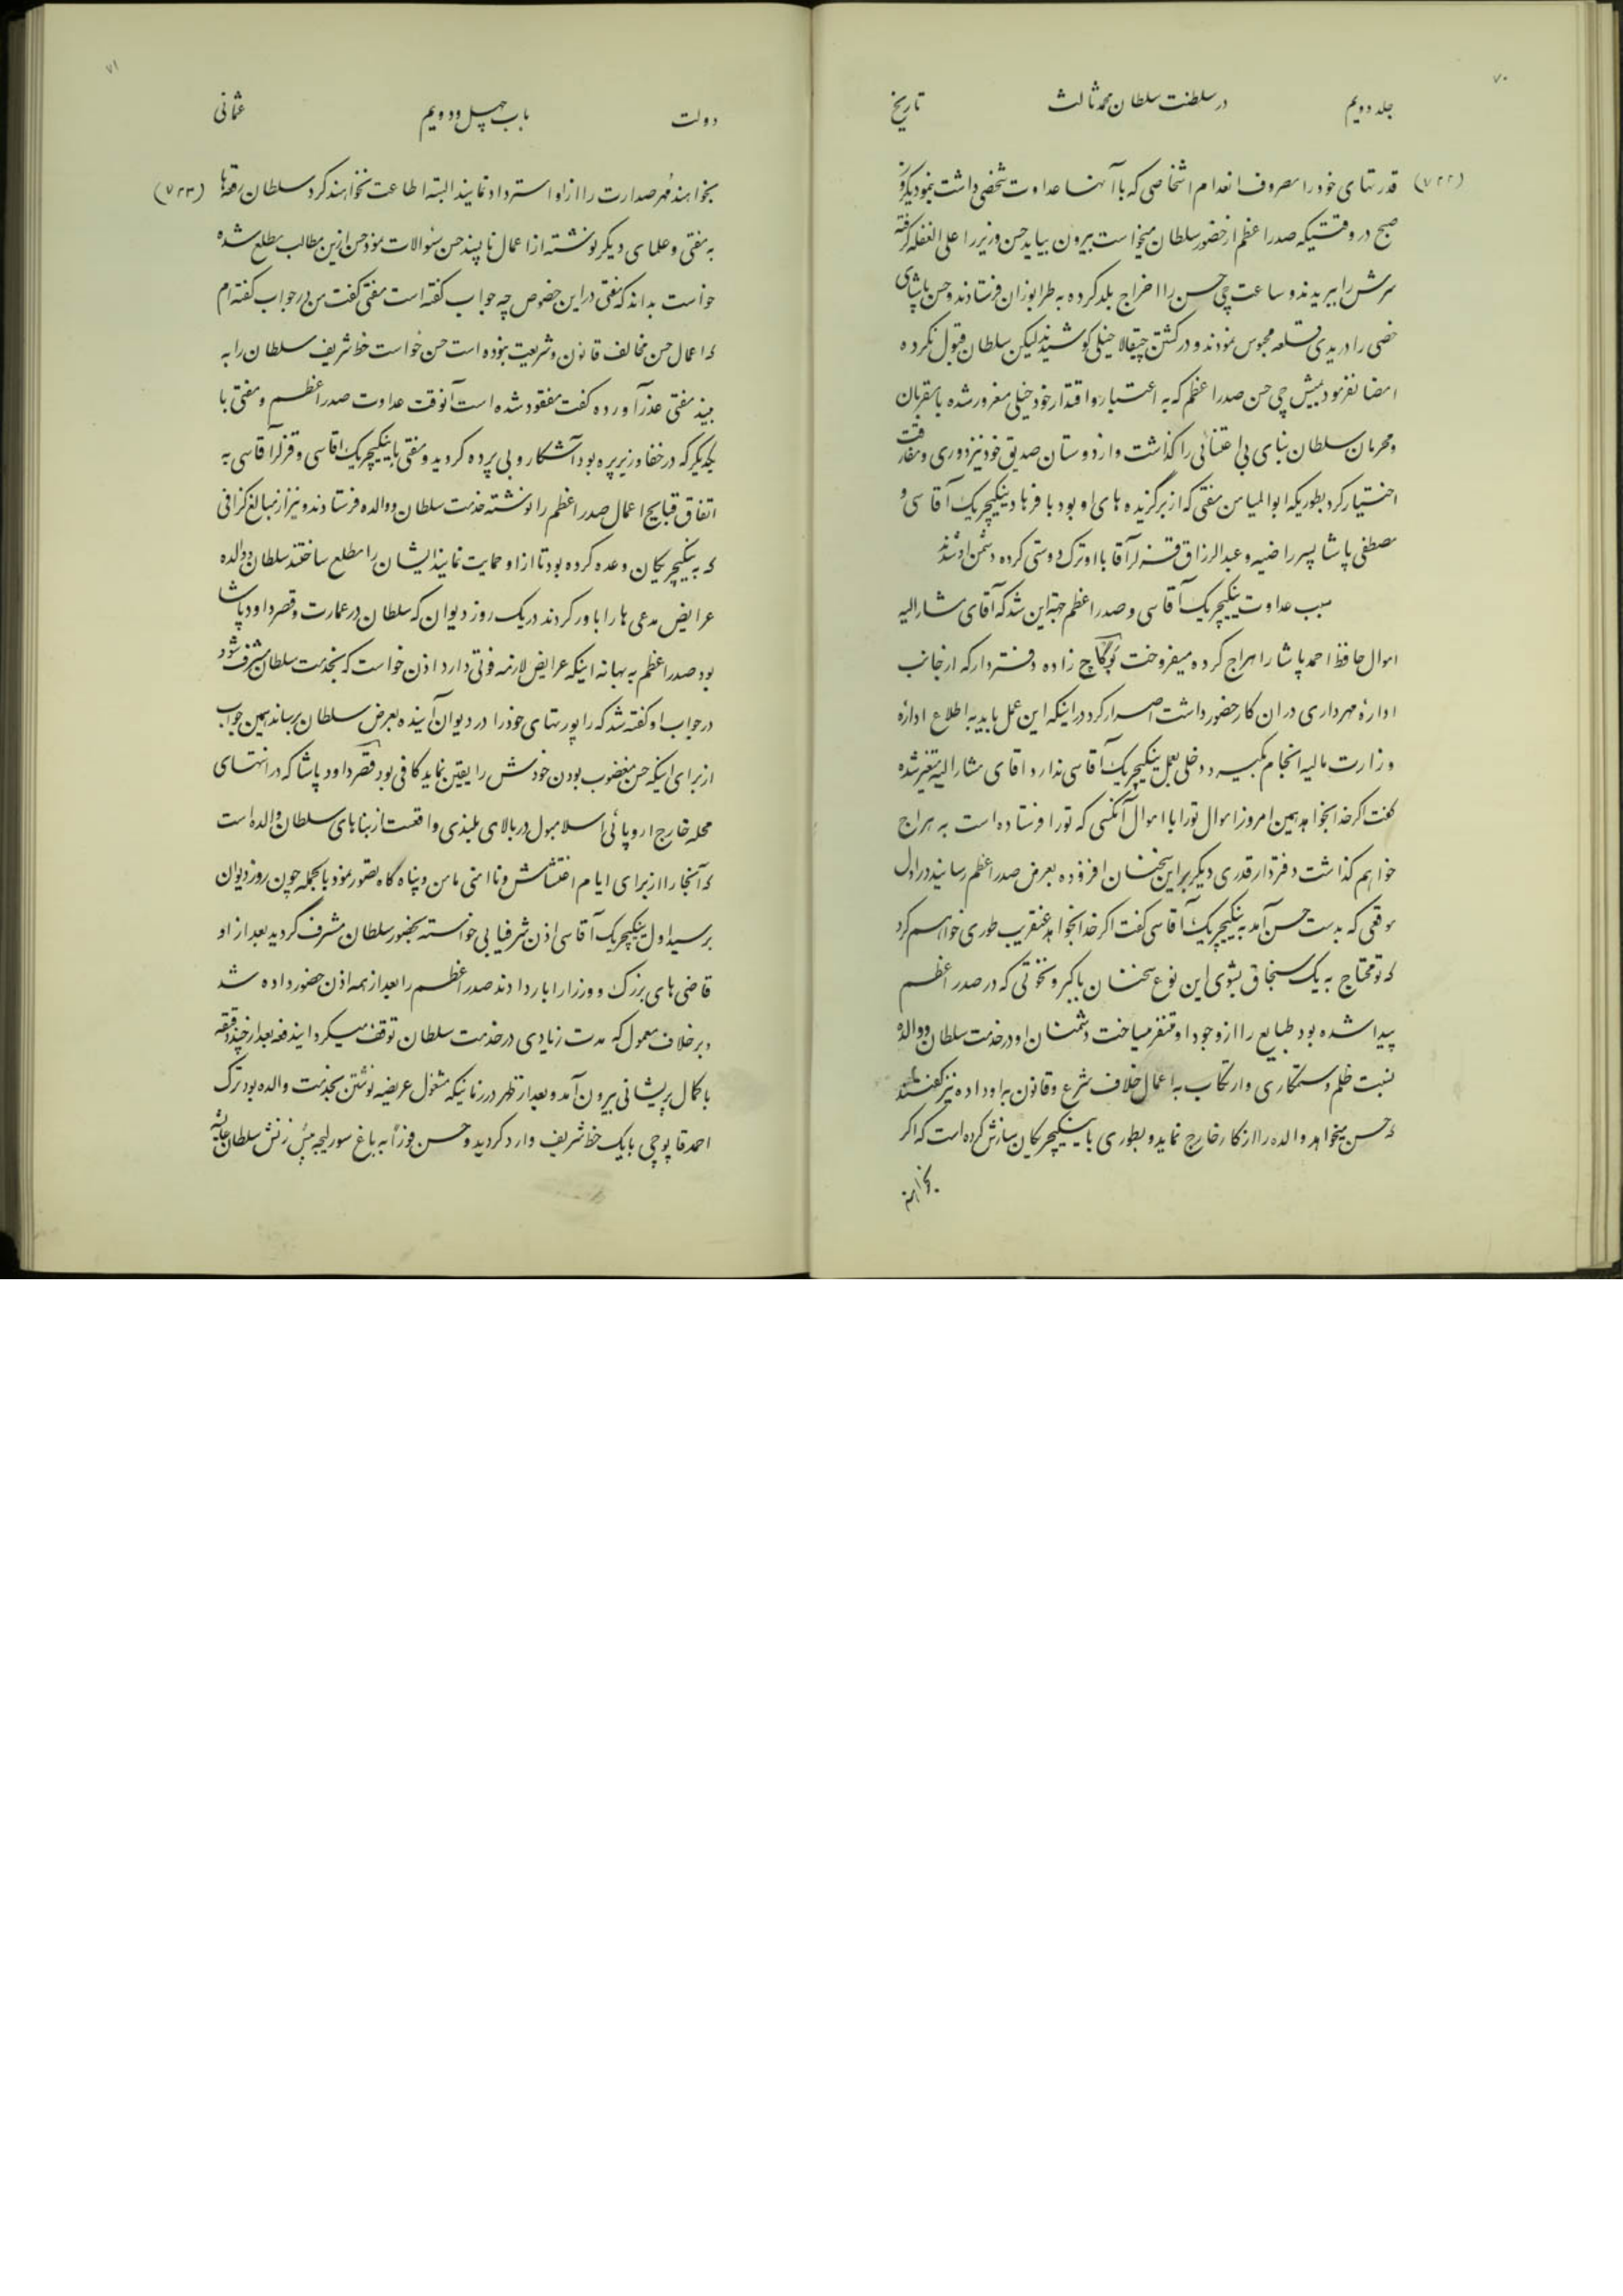 ۷۰
جلد دویم در سلطنت سلطان محمد ثالث تاریخ
(۷۲۲) قدرتهای خود را مصروف انعدام اشخاصی که با آنها عداوت شخصی داشت نمود یکروز
صبح در وقتیکه صدر اعظم از حضور سلطان میخواست بیرون بیاید حسن وزیر را علی الغفله گرفته
سرش را ببریدند و ساعت چی حسن را اخراج بلد کرده به طرابوزان فرستادند و حسن پاشای
خصی را در یدی قلعه محبوس نمودند و در کشتن چیقالا خیلی کوشیدند لیکن سلطان قبول نکرده
امضا نفرمود یمیش چی حسن صدر اعظم که به اعتبار و اقتدار خود خیلی مغرور شده با مقربان
و محرمان سلطان بنای بی اعتنائی را گذاشت و از دوستان صدیق خود نیز دوری و مفارقت
اختیار کرد بطوریکه ابوالمیامن مفتی که از برگزیده های او بود با فرهاد ینگیچریک آقاسی و
مصطفی پاشا پسر راضیه و عبدالرزاق قزلر آقا با او ترک دوستی کرده دشمن او شدند
سبب عداوت ینگیچریک آقاسی و صدر اعظم جهت این شد که آقای مشار الیه
اموال حافظ احمد پاشا را هراج کرده میفروخت زاده دفتردار که از جانب
اداره مهرداری در ان کار حضور داشت اصرار کرد در اینکه این عمل باید به اطلاع اداره
وزارت مالیه انجام بگیرد و دخلی بعمل ینگیچریک آقاسی ندارد اقای مشار الیه متغیر شده
گفت اگر خدا بخواهد همین امروز اموال تورا با اموال آنکسی که تورا فرستاده است به هراج
خواهم گذاشت دفتردار قدری دیگر بر این سخنان افزوده بعرض صدر اعظم رسانید در اول
موقعی که بدست حسن آمد به ینگیچریک آقاسی گفت اگر خدا بخواهد عنقریب طوری خواهم کرد
که تو محتاج به یک سنجاق بشوی این نوع سخنان با کبر و نخوتی که در صدر اعظم
پیدا شده بود طبایع را از وجود او متنفر میساخت دشمنان او در خدمت سلطان و والده
نسبت ظلم و ستمکاری و ارتکاب به اعمال خلاف شرع و قانون به او داده نیز گفتند
که حسن میخواهد والده را از کار خارج نماید و بطوری با ینگیچریکان سازش کرده است که اگر
بخواهند
۷۱
دولت باب چهل و دویم عثمانی
بخواهند مهر صدارت را از او استرداد نمایند البته اطاعت نخواهند کرد سلطان رقعه ها (۷۲۳)
به مفتی و علمای دیگر نوشته از اعمال ناپسند حسن سئوالات نمود حسن ازین مطالب مطلع شده
خواست بداند که مفتی در این خصوص چه جواب گفته است مفتی گفت من در جواب گفته ام
که اعمال حسن مخالف قانون و شریعت نبوده است حسن خواست خط شریف سلطان را به
بیند مفتی عذر آورده گفت مفقود شده است آنوقت عداوت صدر اعظم و مفتی با
یکدیگر که در خفا و زیر پرده بود آشکار و بی پرده گردید و مفتی با ینگیچریک اقاسی و قزلر آقاسی به
اتفاق قبایح اعمال صدر اعظم را نوشته خدمت سلطان و والده فرستادند و نیز از مبالغ گزافی
که به ینگیچریکان وعده کرده بود تا از او حمایت نمایند ایشان را مطلع ساختند سلطان و والده
عرایض مدعی ها را باور کردند در یک روز دیوان که سلطان در عمارت و قصر داود پاشا
بود صدر اعظم به بهانه اینکه عرایض لازمه فوتی دارد اذن خواست که بخدمت سلطان مشرف شود
در جواب او گفته شد که راپورتهای خود را در دیوان آینده بعرض سلطان برساند همین جواب
از برای اینکه حسن مغضوب بودن خودش را یقین نماید کافی بود قصر داود پاشا که در انتهای
محله خارج اروپائی اسلامبول در بالای بلندی واقعست از بناهای سلطان والده است
که آنجا را از برای ایام اغتشاش و ناامنی مامن و پناه گاه تصور نمود بالجمله چون روز دیوان
برسید اول ینگیچریک آقاسی اذن شرفیابی خواسته بحضور سلطان مشرف گردید بعد از او
قاضی های بزرگ و وزرا را بار دادند صدر اعظم را بعد از همه اذن حضور داده شد
و بر خلاف معمول که مدت زیادی در خدمت سلطان توقف میکرد ایندفعه بعد از چند دقیقه
با کمال پریشانی بیرون آمد و بعد از ظهر در زمانیکه مشغول عریضه نوشتن بخدمت والده بود ترک
احمد قاپوچی با یک خط شریف وارد گردید و حسن فوراً به باغ سورلیجه پیش زنش سلطان